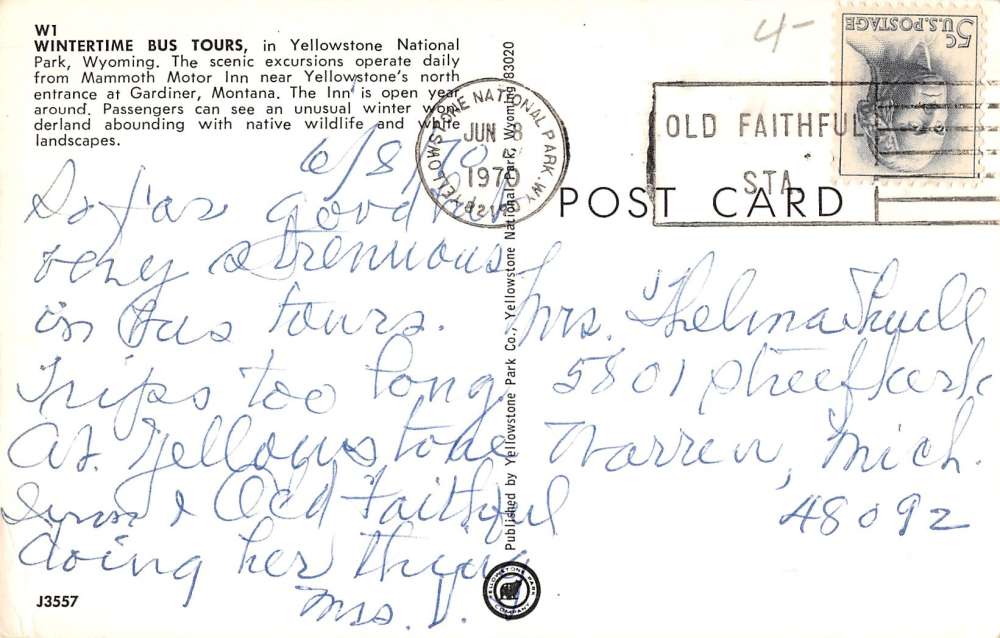 W1
WINTERTIME BUS TOURS, in Yellowstone National
Park, Wyoming. The scenic excursions operate daily
from Mammoth Motor Inn near Yellowstone's north
entrance at Gardiner, Montana. The Inn is open year
around. Passengers can see an unusual winter won-
derland abounding with native wildlife and white
landscapes.
6/8/70
So far good
very strenuous
on bus tours.
Trips too long.
At Yellowstone
& Old Faithful
doing her thing
Mrs. V.
J3557
Published by Yellowstone Park Co., Yellowstone National Park, Wyoming 83020
YELLOWSTONE PARK
COMPANY
YELLOWSTONE NATIONAL PARK, WY
JUN 8
1970
4-
5c U.S. POSTAGE
OLD FAITHFUL
STA
POST CARD
Mrs. Thelma
5801
Warren, Mich.
48092